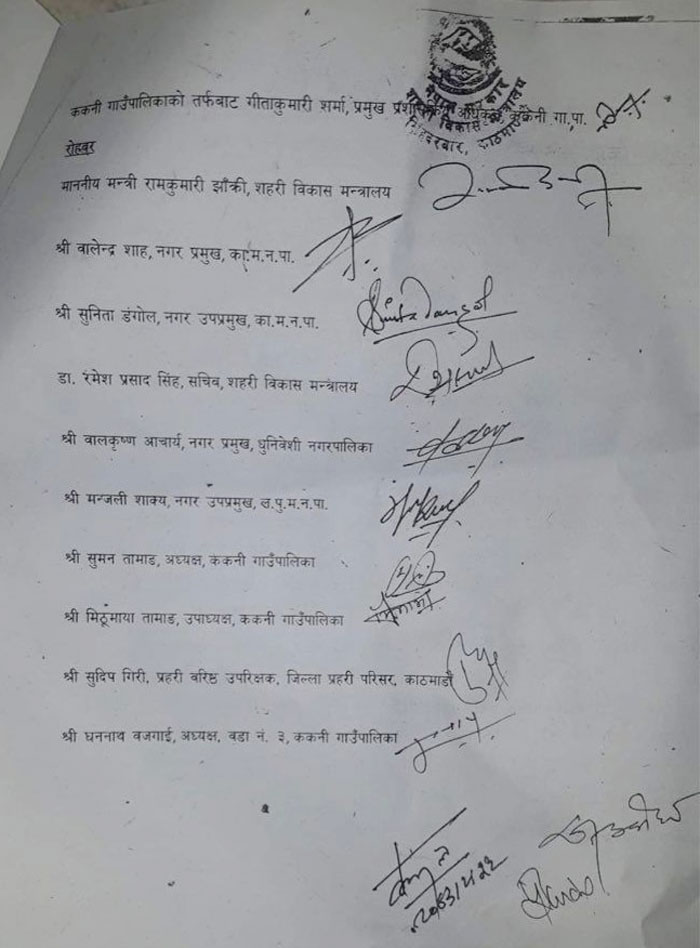 नेपाल सरकार
शहरी विकास मन्त्रालय
सिंहदरबार, काठमाण्डौ
ककनी गाउँपालिकाको तर्फबाट गीताकुमारी शर्मा, प्रमुख प्रशासकीय अधिकृत, ककनी गा.पा.
रोहवर
माननीय मन्त्री रामकुमारी झाँक्री, शहरी विकास मन्त्रालय
श्री वालेन्द्र शाह, नगर प्रमुख, का.म.न.पा.
श्री सुनिता डंगोल, नगर उपप्रमुख, का.म.न.पा. Sunita Dangol
डा. रमेश प्रसाद सिंह, सचिव, शहरी विकास मन्त्रालय
श्री वालकृष्ण आचार्य, नगर प्रमुख, धुनिवेशी नगरपालिका
श्री मन्जली शाक्य, नगर उपप्रमुख, ल.पु.म.न.पा.
श्री सुमन तामाङ, अध्यक्ष, ककनी गाउँपालिका
श्री मिठुमाया तामाङ, उपाध्यक्ष, ककनी गाउँपालिका
श्री सुदिप गिरी, प्रहरी वरिष्ठ उपरिक्षक, जिल्ला प्रहरी परिसर, काठमाडौं
श्री धननाथ वजगाई, अध्यक्ष, वडा नं. ३, ककनी गाउँपालिका